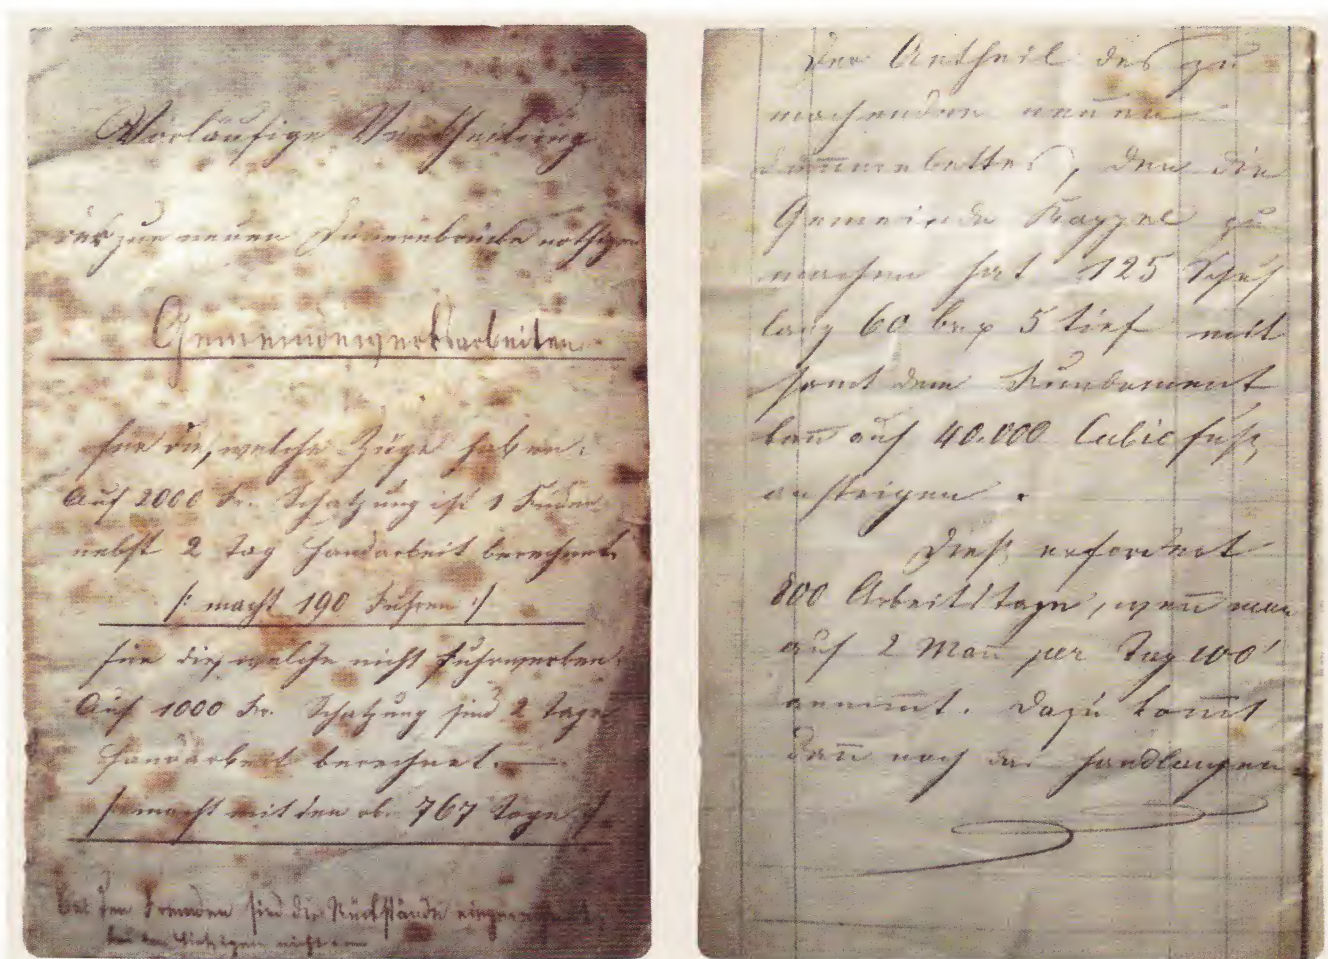 Vorläufige Vertheilung
der zur neuen Dünnernbrücke nöthigen
Gemeindewerksarbeiten
für die, welche Züge haben:
Auf 2000 Fr. Schatzung ist 1 Fuder
nebst 2 Tag Handarbeit berechnet.
/: macht 190 Fuhren :/
für die, welche nicht Fuhrwerken:
Auf 1000 Fr. Schatzung sind 2 Tage
Handarbeit berechnet.
/: macht mit den ob. 767 Tage :/
bei den Fremden sind die Rückstände
bei den Hiesigen nicht
Der Antheil des zu
machenden neuen
Dünnernbettes, den die
Gemeinde Kappel zu
machen hat 125 Schuh
lang 60 br 5 tief mit
samt dem Fundament
kan̄ auf 40.000 Cubicfuß
ansteigen.
Dieß erfordert
800 Arbeitstage, wen̄ man
auf 2 Man̄ per Tag 100'
annim̄t. Dazu kom̄t
dan̄ noch das Handlangen